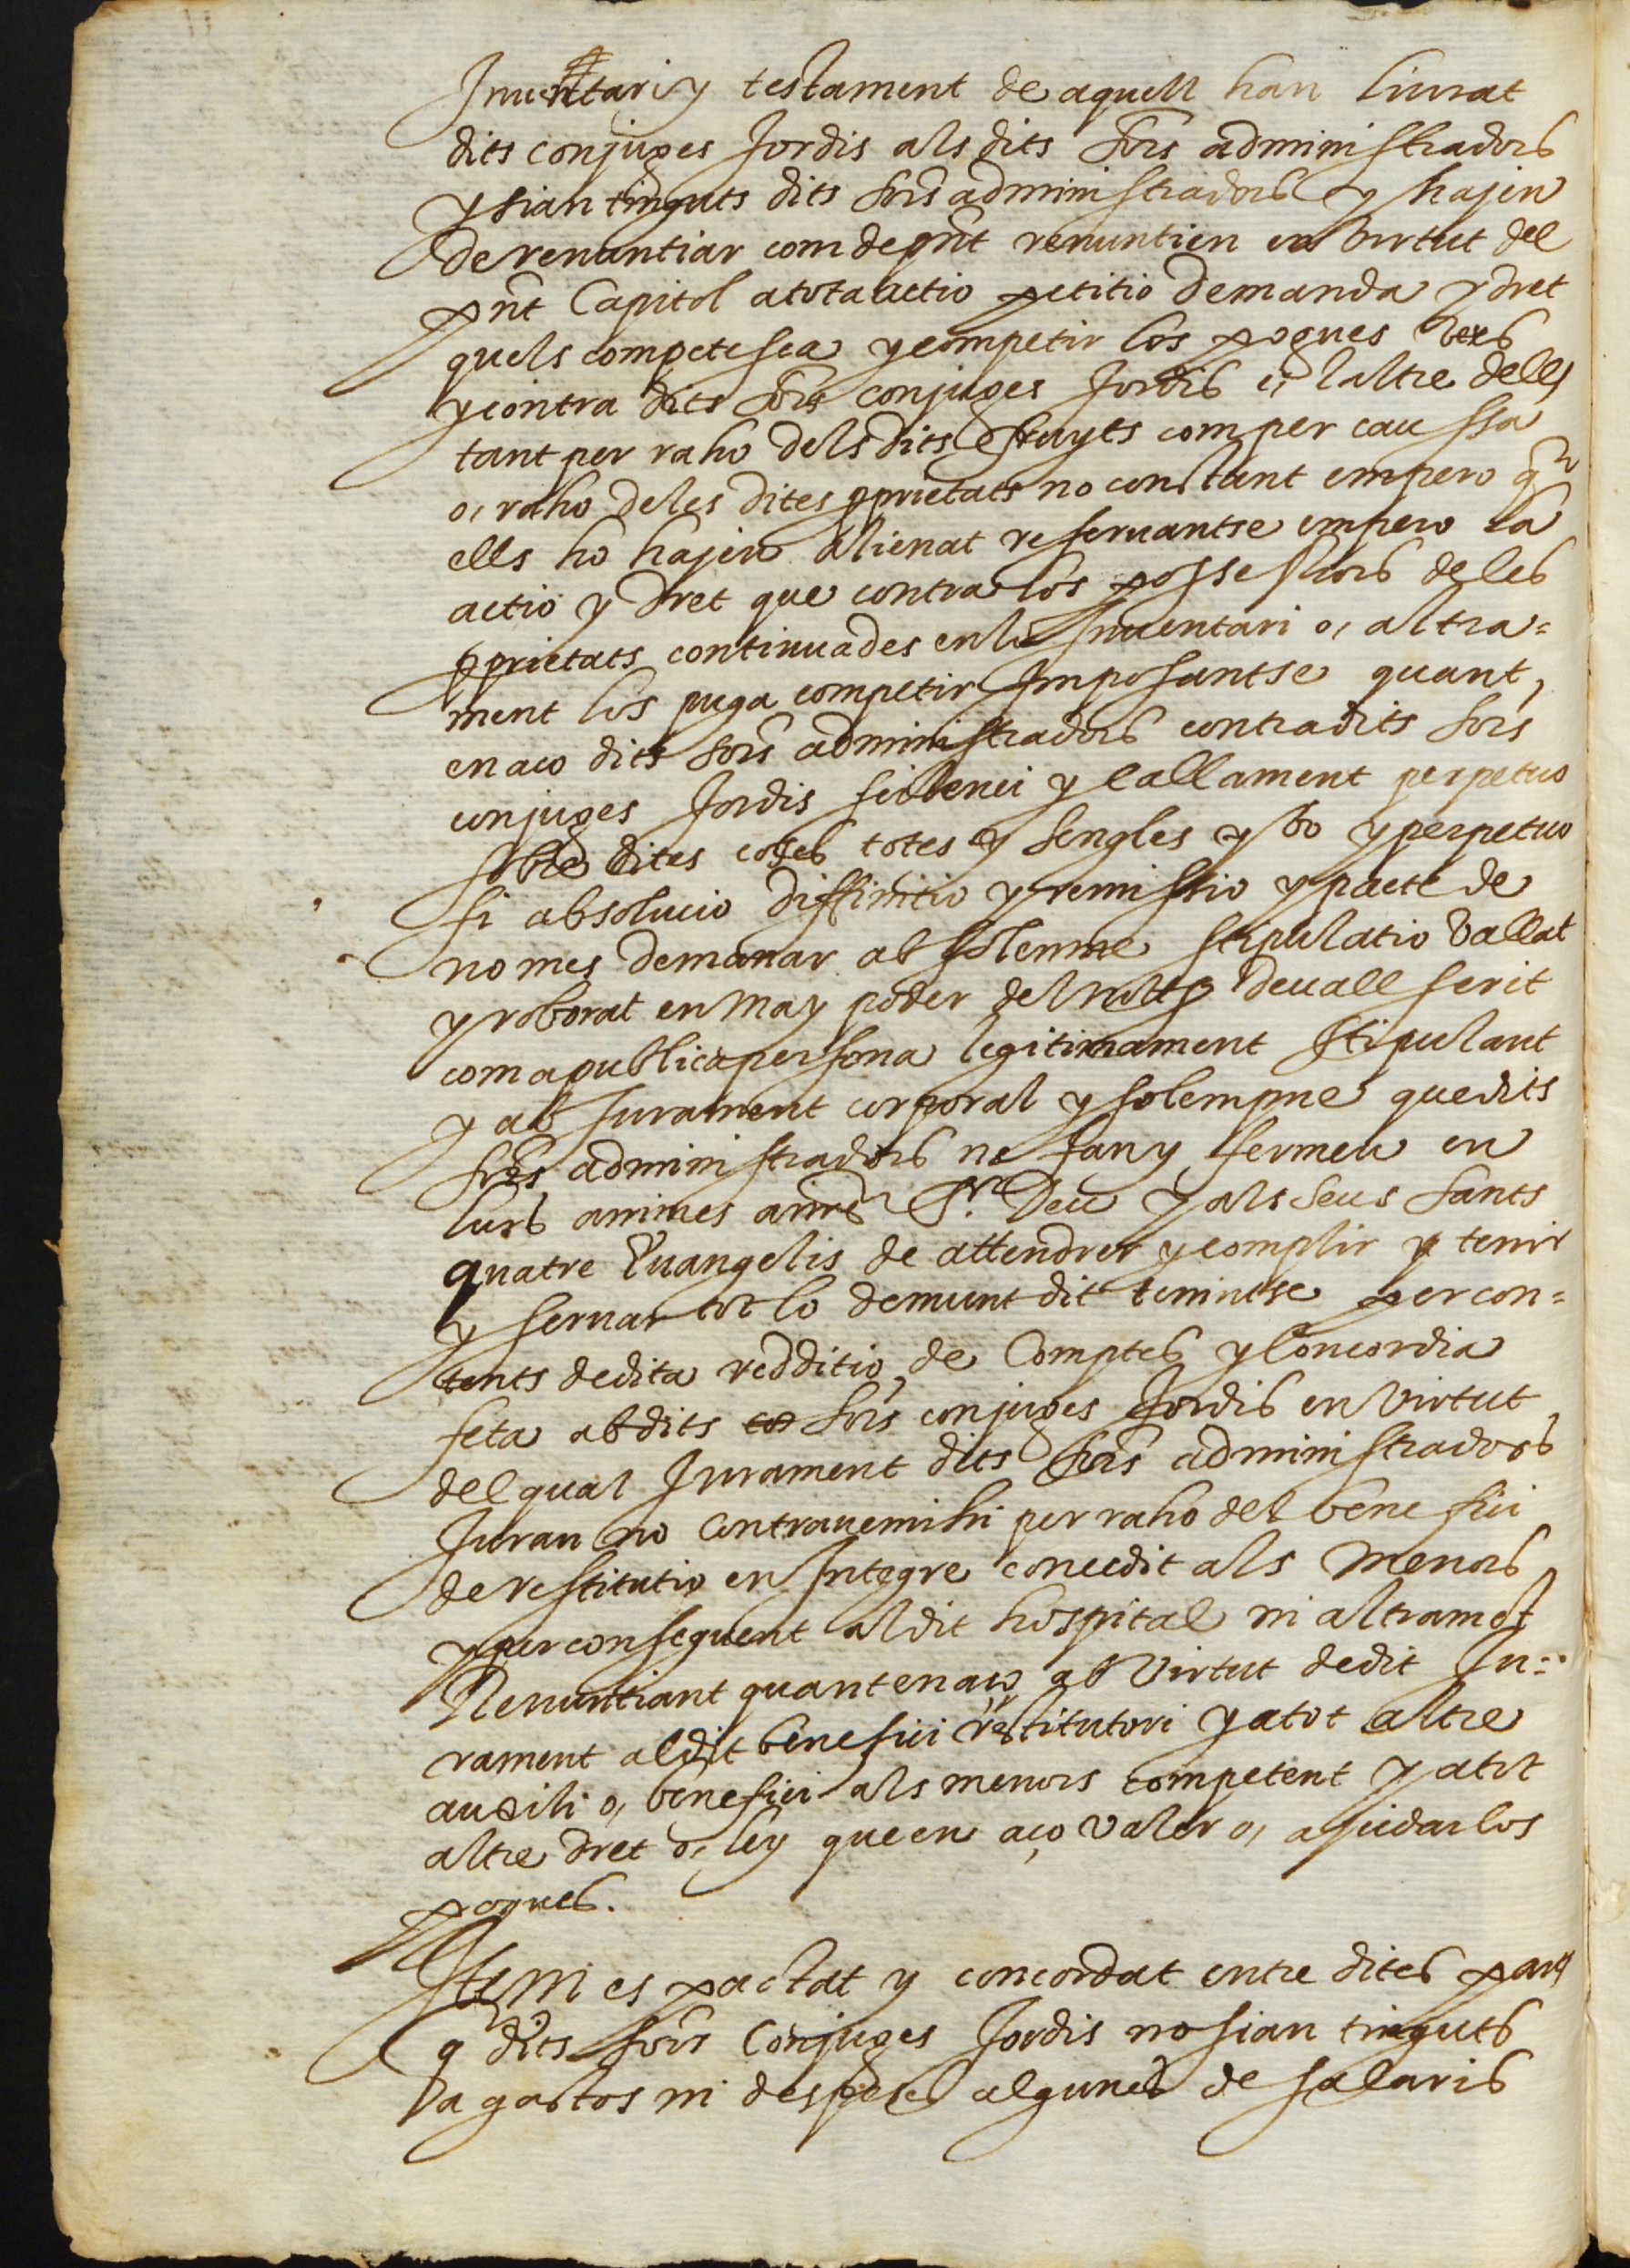 Inuentari y testament de aquell han liurat
dits conjuges Jordis als dits Sors administradors
y sian tinguts dits Sors administradors y hajen
de renuntiar com de pnt renuntien en virtut del
pnt Capitol a tota actio petitio demanda y dret
quels competesca y competir los pogues vers
y contra dits Sors conjuges Jordis o, laltre dells
tant per raho dels dits fruyts com per caussa
o, raho de les dites pprietats no constant empero q
ells ho hajen alienat reseruantse empero la
actio y dret que contra los possessors de les
pprietats continuades en lo Inuentari o, altra=
ment los puga competir Imposantse quant
en aço dits Sors administradors contra dits Sors
conjuges Jordis silenci y callament perpetuo
sobre dites coses totes y sengles y bo y perpetuo
fi absolucio diffinitio y remissio y pacte de
no mes demanar ab solemne stipulatio vallat
y roborat en ma y poder del notr deuall scrit
com a publica persona legitimament stipulant
y ab Jurament corporal y solempne que dits
Sors administradors ne fan y fermen en
lurs animes a nre Sr. Deu y als seus sants
quatre Euangelis de attendrer y complir y tenir
y seruar tot lo demunt dit tenintse per con=
tents de dita redditio de Comptes y Concordia
feta ab dits Sors conjuges Jordis en virtut
del qual Jurament dits Sors administradors
Juran no contrauenir hi per raho del benefici
de restitutio en Integre concedit als menors
y per consequent al dit hospital ni altrament
Renuntiant quant en aço ab virtut de dit Ju=
rament al dit benefici restitutori y a tot altre
auxili o, benefici als menors competent y a tot
altre dret o, ley que en aço valer o, ajudar los
pogues.
Item es pactat y concordat entre dites parts
q dits Sors Conjuges Jordis no sian tinguts
a gastos ni despeses algunes de salaris